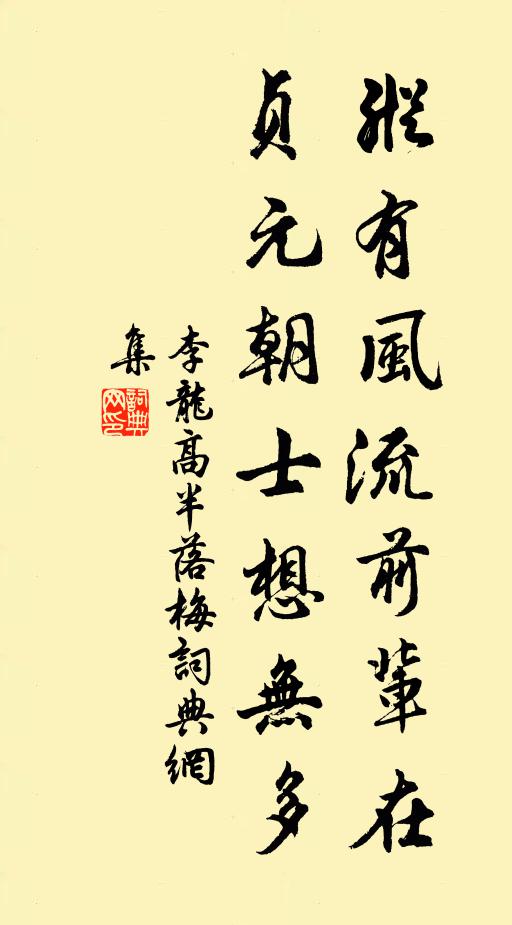 縱有風流前輩在
貞元朝士想無多
李龍高半落梅詞典網
集
詞典
网印